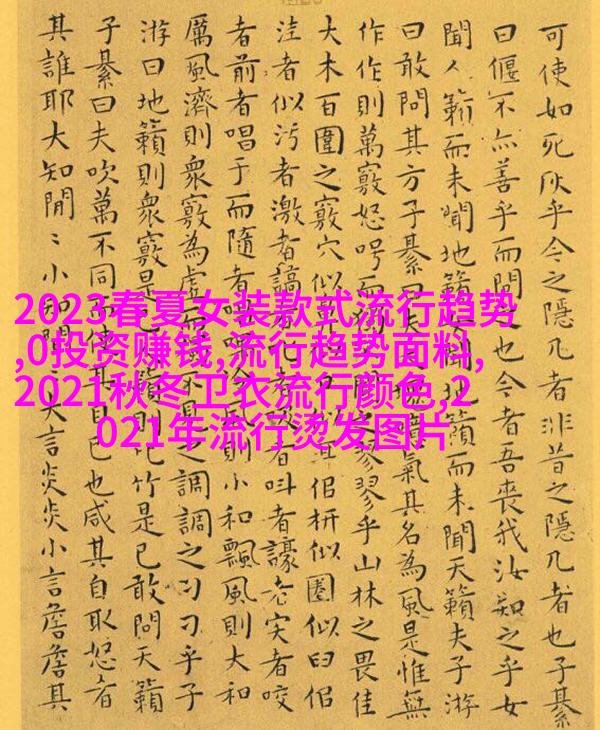 可使如死灰乎今之隱几者非昔之隱几者也子綦
曰偃不亦善乎而問也今者吾喪我汝知之乎女
聞人籟而未聞地籟聞地籟而未聞天籟夫子游
曰敢問其方子綦曰夫大氣其名為風是惟無
作作則萬竅怒呺而獨之翏翏乎山林之畏佳
大木百圍之竅穴似似枅似圈似臼似
洼者似污者激者謞者者叫者譹者宎者咬
者前者唱于而隨者唱風則小和飄風則大和
厲風濟則衆竅為虛而之調調之刁刁乎子
游曰地籟則衆竅是已籟則比竹是已敢問天籟
子綦曰夫吹萬不同而使其自己也咸其自取怒者
其誰耶大知閒〻小知閒〻大言炎炎小言詹詹其
2023春夏女装款式流行趋势
,0投资赚钱,流行趋势面料,
2021秋冬卫衣流行颜色,2
021年流行烫发图片